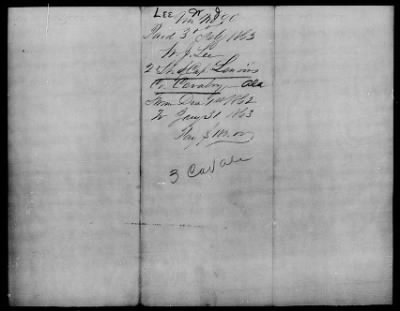 LEE W J
Vou No 90
Paid 3d Feby 1863
W. J. Lee
2 Lt of Cap Lenoirs
Co. Cavalry Ala
From Dec 1st 1862
To Jany 31 1863
Pay $ 180.00
3 Cav Ala